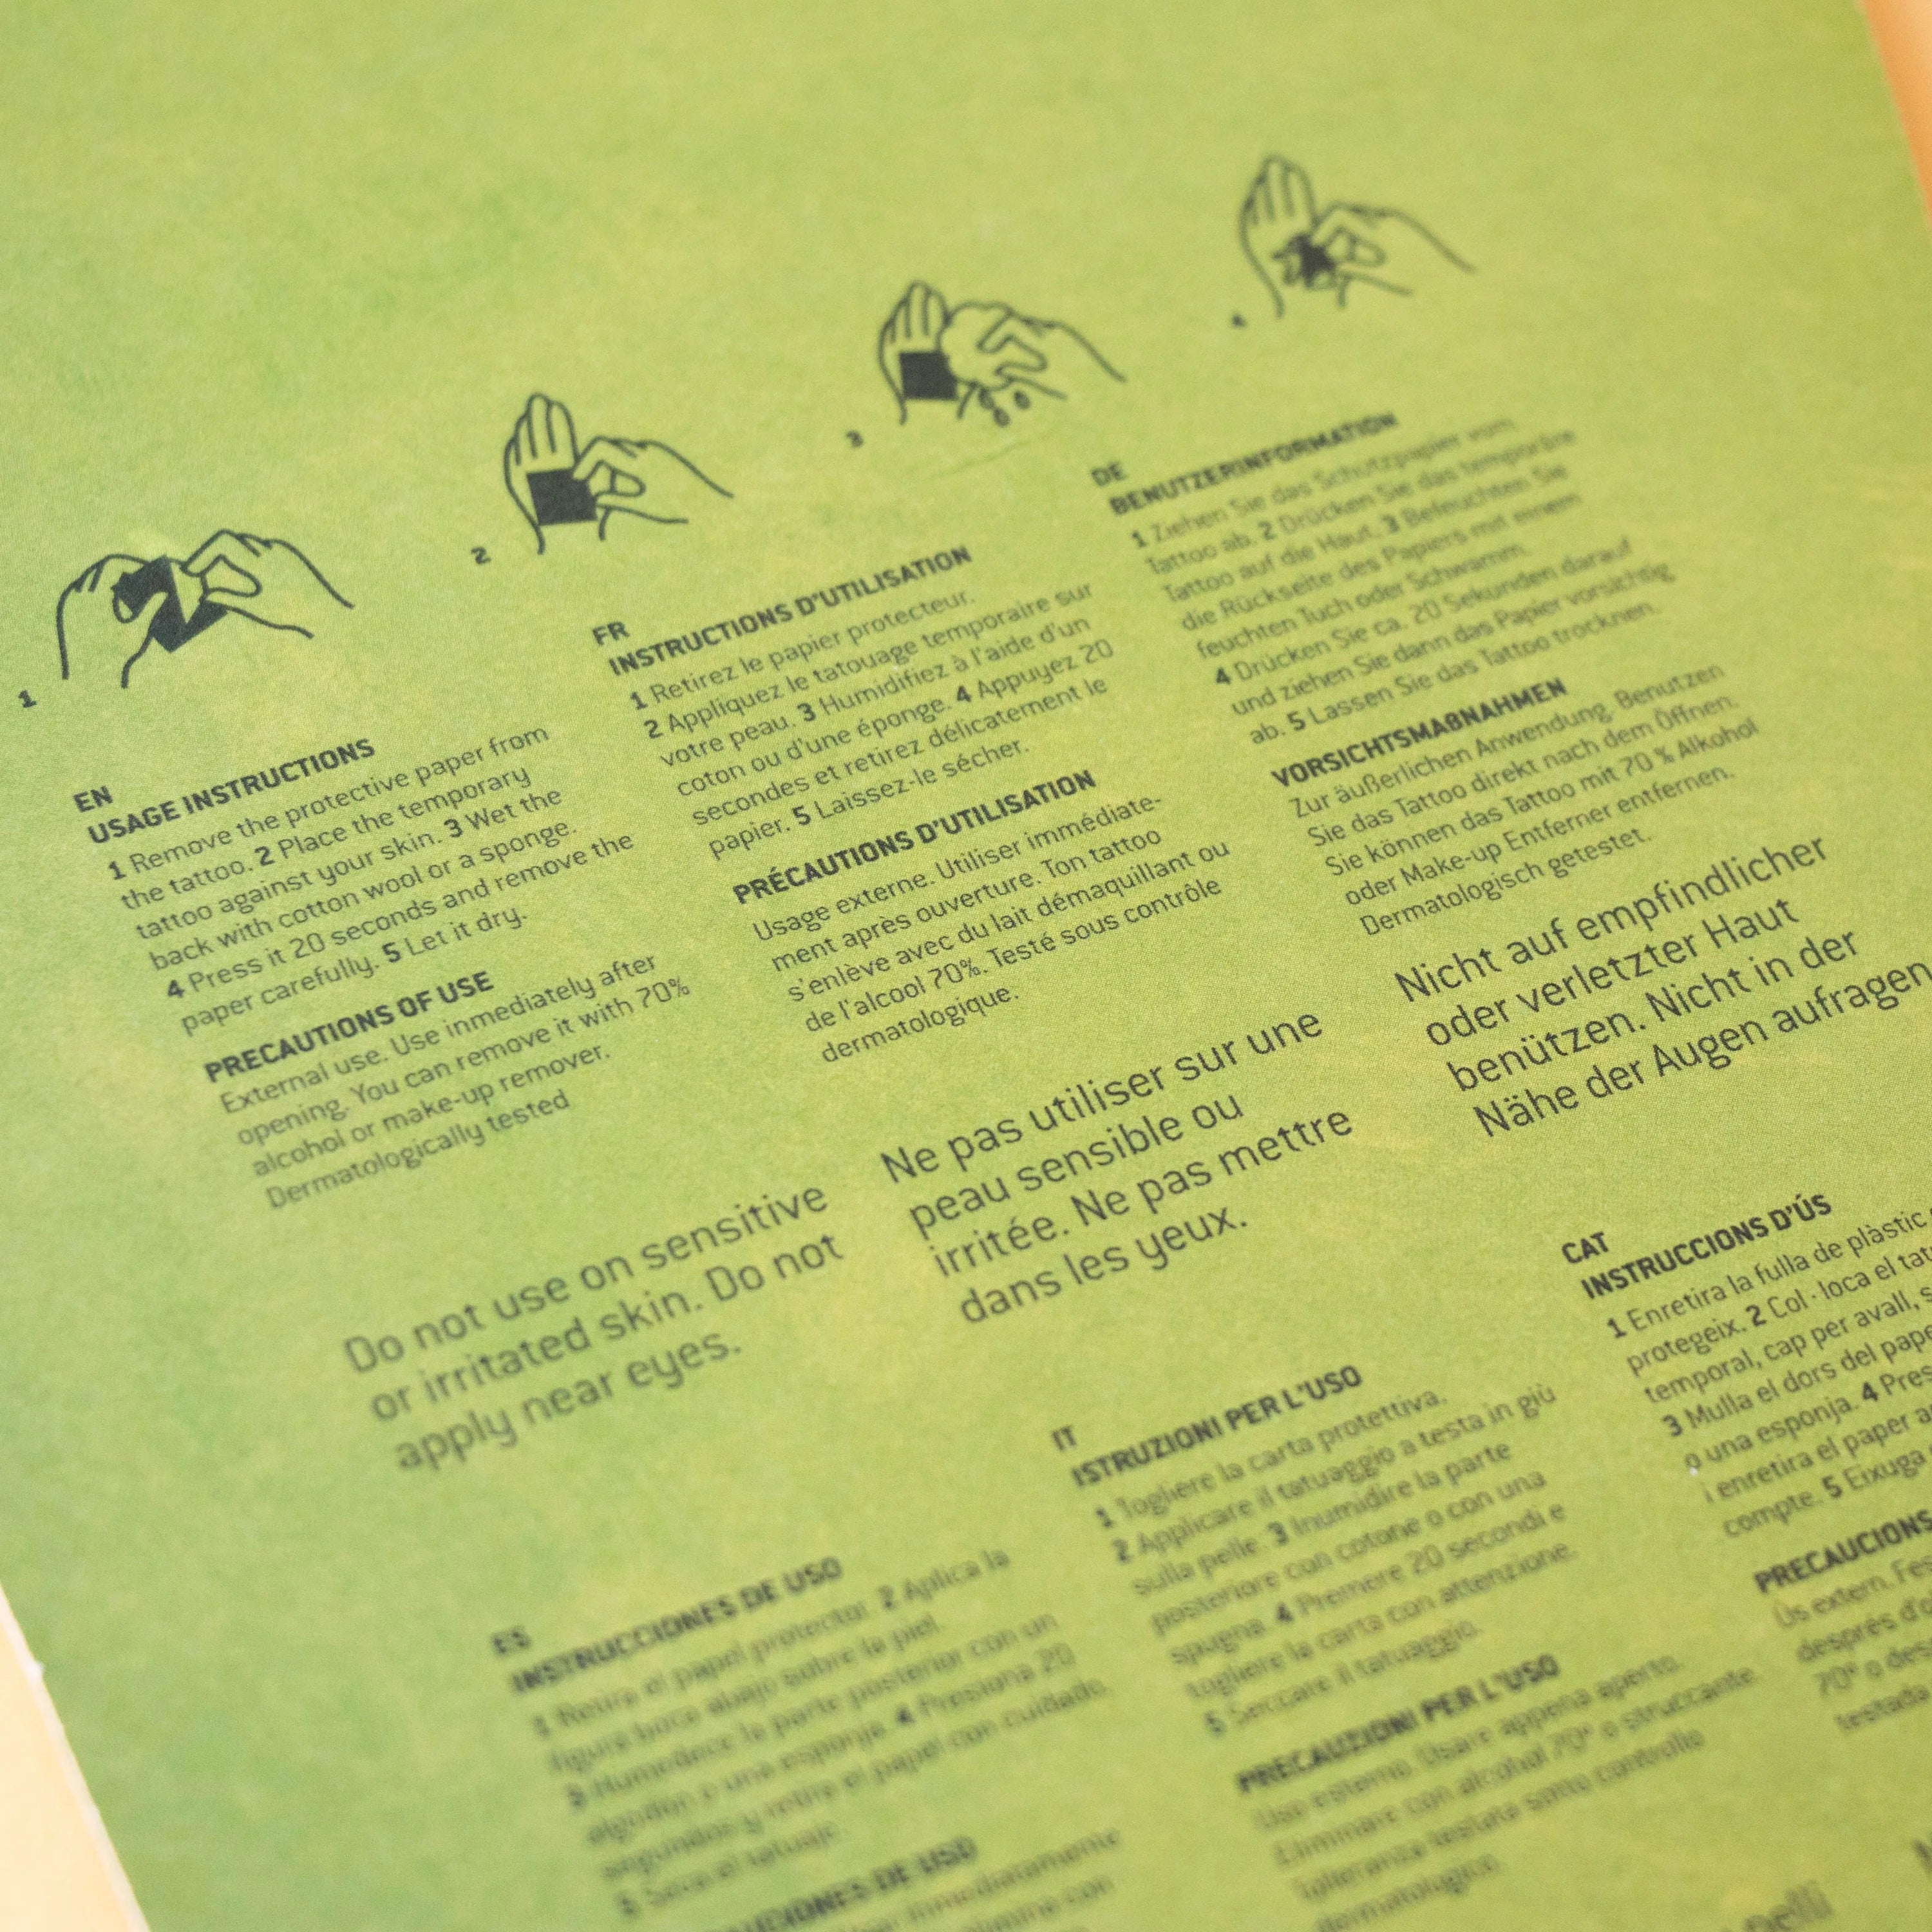 1
2
3
4
EN
USAGE INSTRUCTIONS
1 Remove the protective paper from
the tattoo. 2 Place the temporary
tattoo against your skin. 3 Wet the
back with cotton wool or a sponge.
4 Press it 20 seconds and remove the
paper carefully. 5 Let it dry.
PRECAUTIONS OF USE
External use. Use inmediately after
opening. You can remove it with 70%
alcohol or make-up remover.
Dermatologically tested
Do not use on sensitive
or irritated skin. Do not
apply near eyes.
FR
INSTRUCTIONS D'UTILISATION
1 Retirez le papier protecteur.
2 Appliquez le tatouage temporaire sur
votre peau. 3 Humidifiez à l'aide d'un
coton ou d'une éponge. 4 Appuyez 20
secondes et retirez délicatement le
papier. 5 Laissez-le sécher.
PRÉCAUTIONS D'UTILISATION
Usage externe. Utiliser immédiate-
ment après ouverture. Ton tattoo
s'enlève avec du lait démaquillant ou
de l'alcool 70%. Testé sous contrôle
dermatologique.
Ne pas utiliser sur une
peau sensible ou
irritée. Ne pas mettre
dans les yeux.
DE
BENUTZERINFORMATION
1 Ziehen Sie das Schutzpapier vom
Tattoo ab. 2 Drücken Sie das temporäre
Tattoo auf die Haut. 3 Befeuchten Sie
die Rückseite des Papiers mit einem
feuchten Tuch oder Schwamm.
4 Drücken Sie ca. 20 Sekunden darauf
und ziehen Sie dann das Papier vorsichtig
ab. 5 Lassen Sie das Tattoo trocknen.
VORSICHTSMAßNAHMEN
Zur äußerlichen Anwendung. Benutzen
Sie das Tattoo direkt nach dem Öffnen.
Sie können das Tattoo mit 70 % Alkohol
oder Make-up Entferner entfernen.
Dermatologisch getestet.
Nicht auf empfindlicher
oder verletzter Haut
benützen. Nicht in der
Nähe der Augen aufragen
ES
INSTRUCCIONES DE USO
1 Retira el papel protector. 2 Aplica la
figura boca abajo sobre la piel.
3 Humedece la parte posterior con un
algodón o una esponja. 4 Presiona 20
segundos y retire el papel con cuidado.
5 Seca el tatuaje.
DE USO
inmediatamente
con
IT
ISTRUZIONI PER L'USO
1 Togliere la carta protettiva.
2 Applicare il tatuaggio a testa in giù
sulla pelle. 3 Inumidire la parte
posteriore con cotone o con una
spugna. 4 Premere 20 secondi e
togliere la carta con attenzione.
5 Seccare il tatuaggio.
PRECAUZIONI PER L'USO
Uso esterno. Usare appena aperto.
Eliminare con alcohol 70° o struccante.
Tolleranza testata sotto controllo
dermatologico.
CAT
INSTRUCCIONS D'ÚS
1 Enretira la fulla de plàstic
protegeix. 2 Col·loca el
temporal, cap per avall,
3 Mulla el dors del
o una esponja. 4
i enretira el paper
compte. 5 Eixuga
Ús extern.
després
70° o
testada